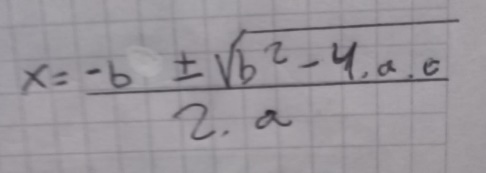 x = -b ± √b² - 4 . a . c
2 . a